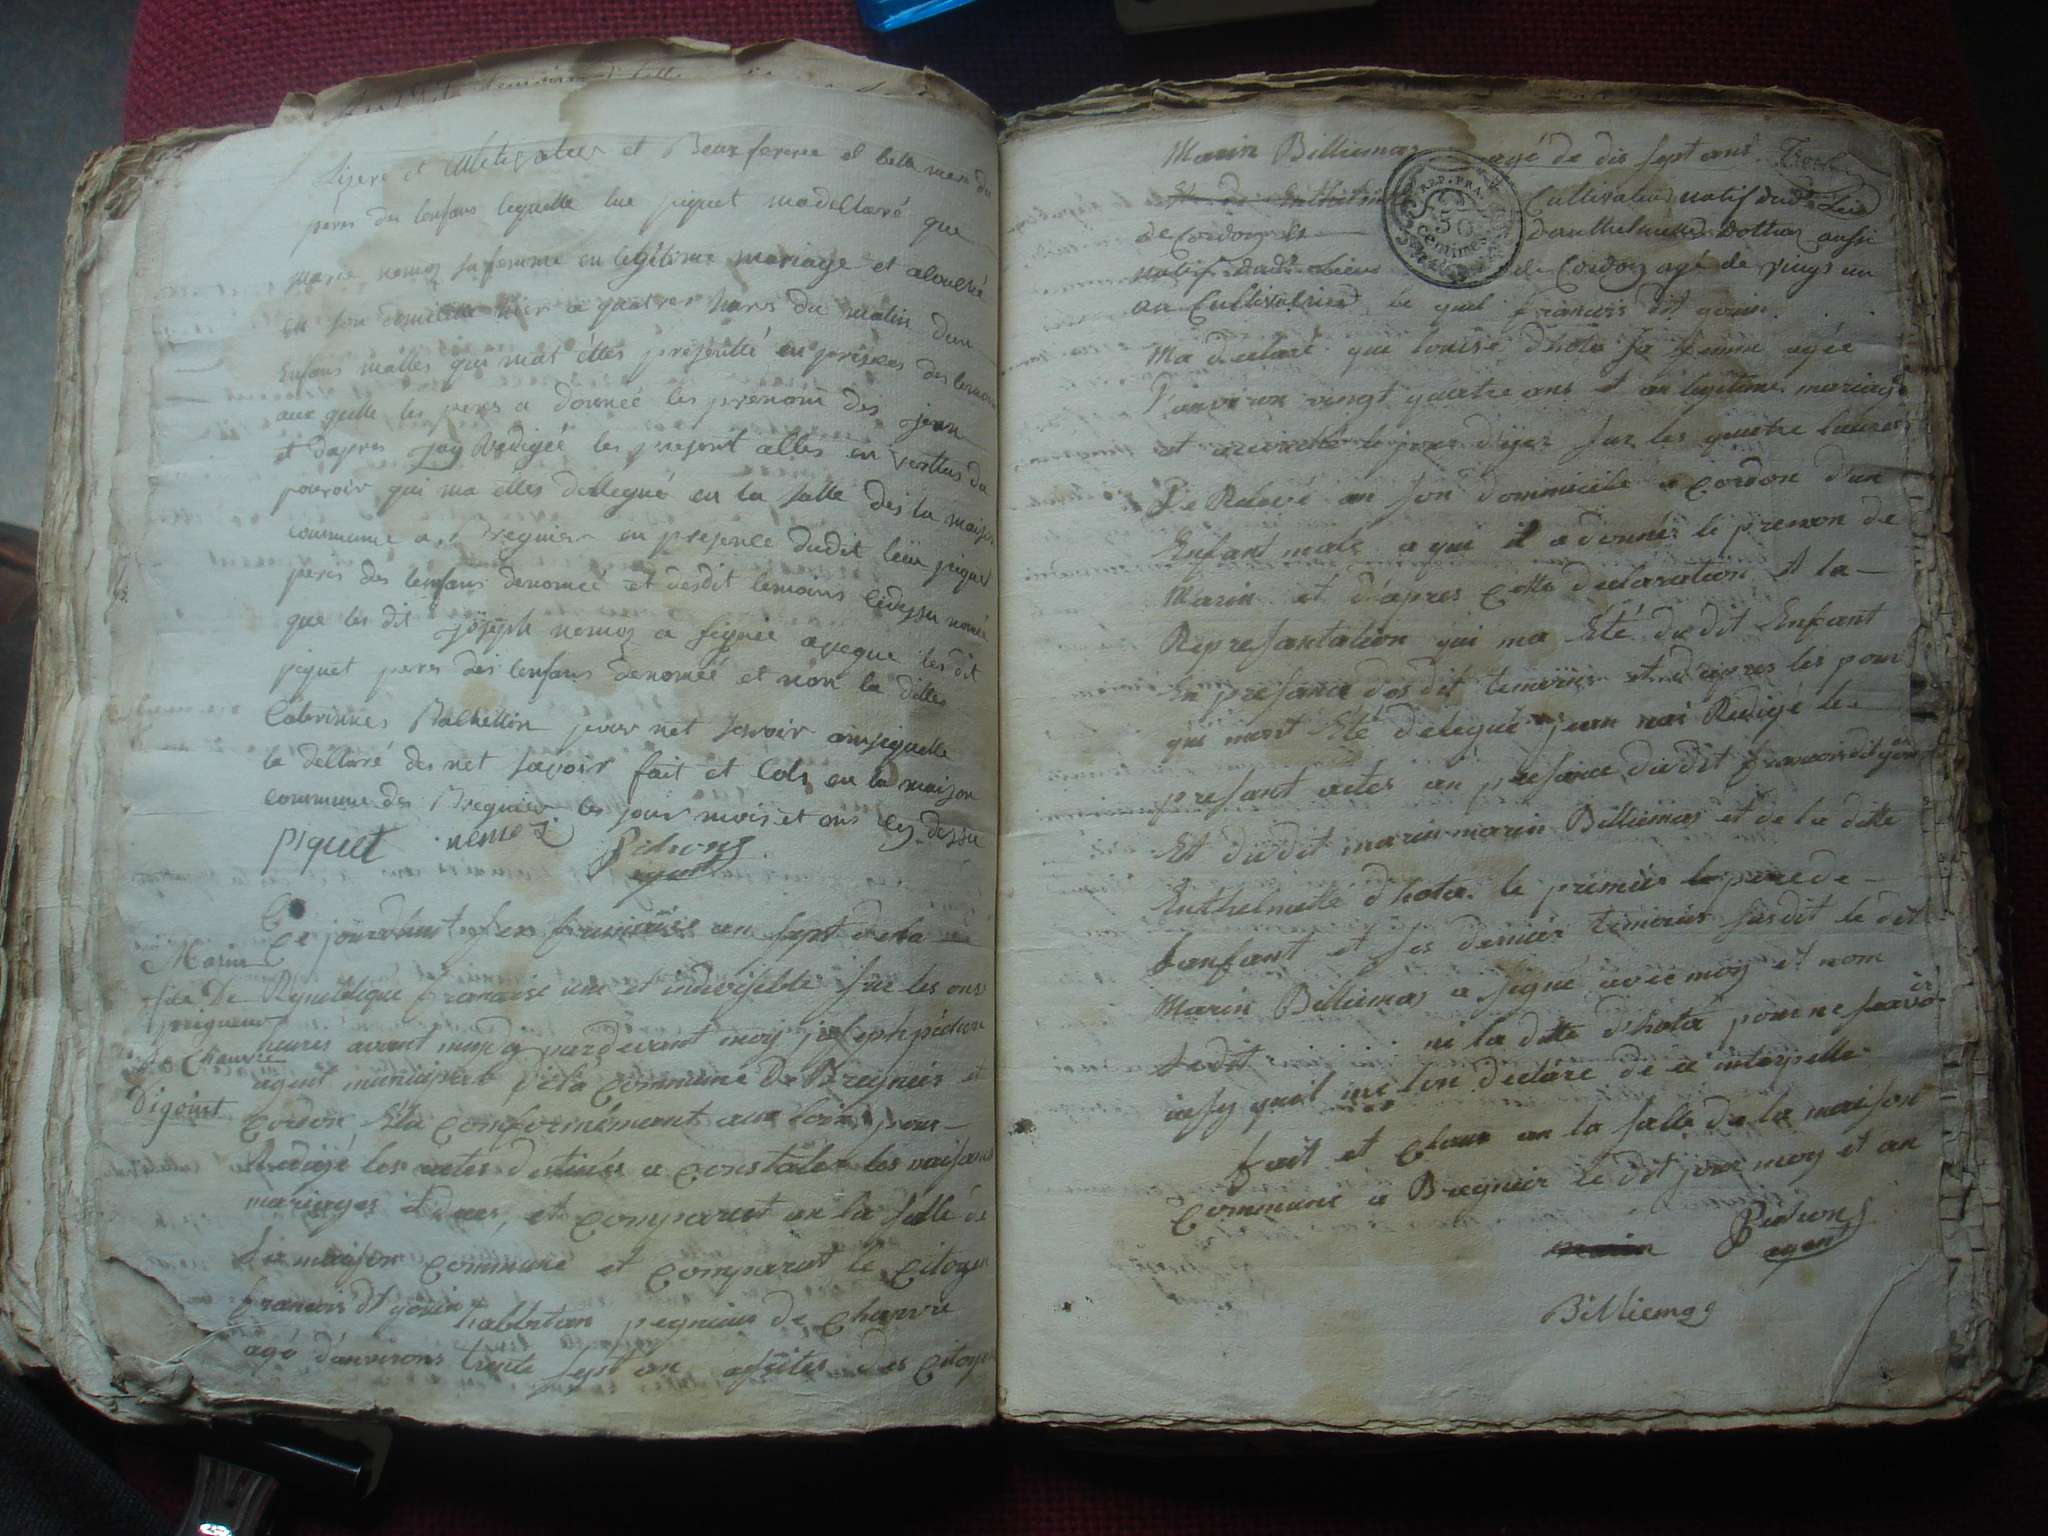 Lisere et et Beux ferere et bele mere du
peres du lenfans lequelle lue piquet ma dellaré que
marie nemoz sa femme en legitime mariage et alouché
en son domicille hier a quatres hures du matin dun
Enfans malles qui mat éttes presentté en presences des temoin
auxquelle les peres a donnéé les prenom des jean
et dapres jay Redigéé les present alles en verttus du
pouvoir qui ma ettes dellegué en la salle des la maison
commune a Bregnier en presence dudit leux piquet
peres des lenfans denomeé et desdit temoins cidessu nomé
que les dit joseph nemoz a signée aveque les dit
piquet peres des lenfans denomeé et non la ditte
Bathellin pour net savoir
le dellaré des net savoir fait et clos en la maizon
commune des Bregnier les jour mois et ans cy dessu
piquet nemoz Pidion
agent
Ce jourdhuit six frimaire an sept de la
Marin
fils De
peigneur
de Chanvre
Digoint
Republique francaise une et indivisible sur les onze
heures avant midy pardevant moy joseph pidion
agent municipale de la commune De Bregnier et
Cordon Elu conformément aux loix pour
Redigé les actes destinés a constater les naisans
mariages et deces, et comparut en la salle de
la maison commune et comparut le Citoyen
francois dt goin habittan peigneur de chanvre
agé d'anvirons trente sept an assites des Citoyen
Marin Billiemaz agé de dis sept ans
Cultivateur natif dudt Lieu
de Cordon et d'anthelmette dottaz aussi
natif dudt Lieu de Cordon agé de vingt un
an Cultivatrice le quel francois dit goin
Ma declaré que louise dhota sa femme agée
D'anviron vingt quatre ans et an legitime mariage
et acouché le jour d'yer sur les quatre heures
De Relevé an son dommicile a Cordon d'un
Enfant male a qui il a donné le prenon de
Marin et d'apres cette declaration et la
Represantation qui ma Eté dudit Enfant
En presance des dit temoins et d'apres les pouv
qui mont Eté delegué jean nai Redigé le
presant actes an presance dudit francois dit goin
Et dudit marin marin Billiemas et de la ditte
Enthelmette d'hota le premier le pere de
Lanfant et les dernier temoins susdit le dit
Marin Billiemas a signé avec moy et nom
Ledit ni la ditte d'hota pour ne savoir
insy quil me lon declaré de ce interpellé
fait et Claus an la salle de la maison
Commune a Bregnier le dit jour moy et an
Pidion
agent
Billiemaz
REP. FRA.
50
Centimes